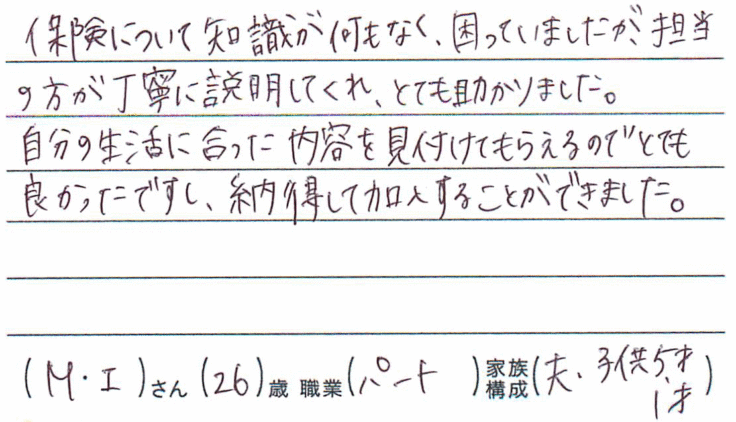 保険について知識が何もなく、困っていましたが、担当
の方が丁寧に説明してくれ、とても助かりました。
自分の生活に合った内容を見付けてもらえるのでとても
良かったですし、納得して加入することができました。
(M・I)さん(26)歳 職業(パート)家族構成(夫、子供5才 1才)